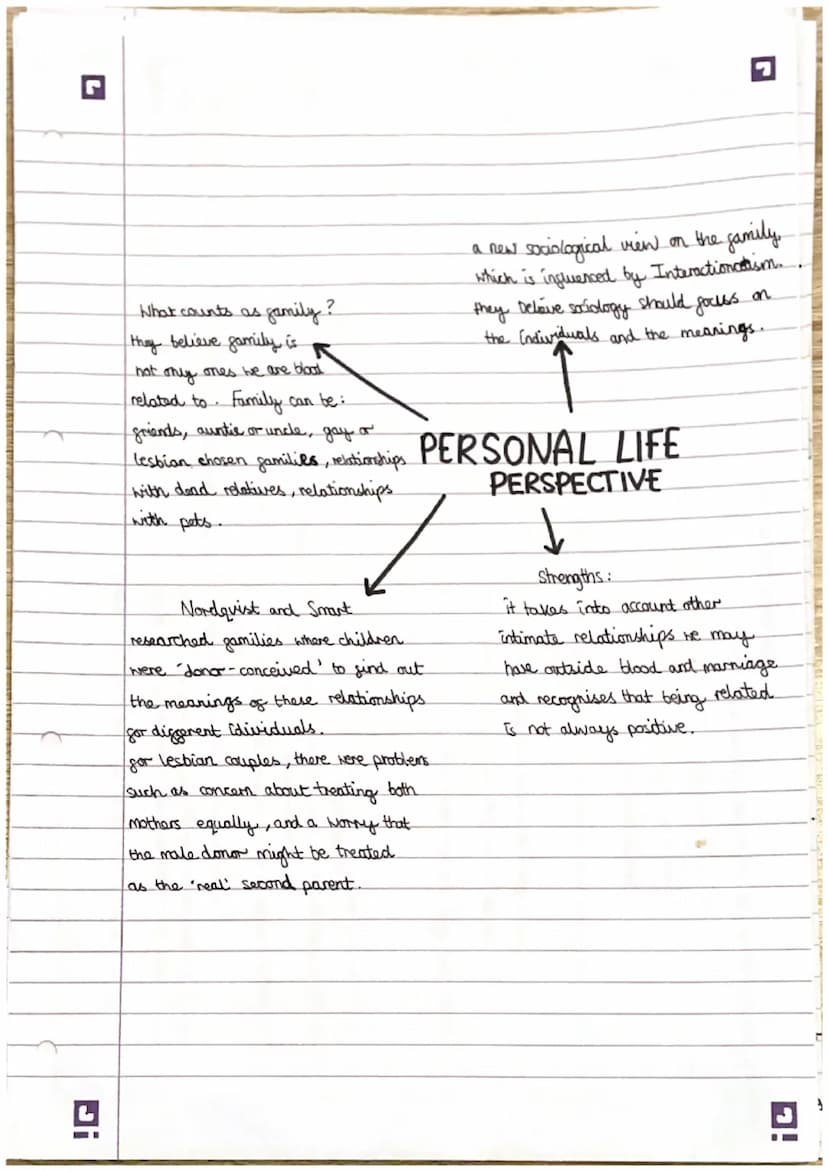 a new sociological view on the family,
which is influenced by Interactionism.
they beleive sociology should focus on
the individuals and the meanings.
What counts as family?
they believe family is
not only ones we are blood
related to. Family can be:
friends, auntie or uncle, gay or
lesbian chosen families, relationships
with dead relatives, relationships
with pets.
PERSONAL LIFE
PERSPECTIVE
Nordquist and Smart
researched families where children
were 'donor-conceived' to find out
the meanings of these relationships
for different idividuals.
for lesbian couples, there were problems
such as concern about treating both
mothers equally, and a worry that
the male donor might be treated
as the 'real' second parent.
Strengths:
it takes into account other
intimate relationships we may
have outside blood and marriage
and recognises that being related
is not always positive.